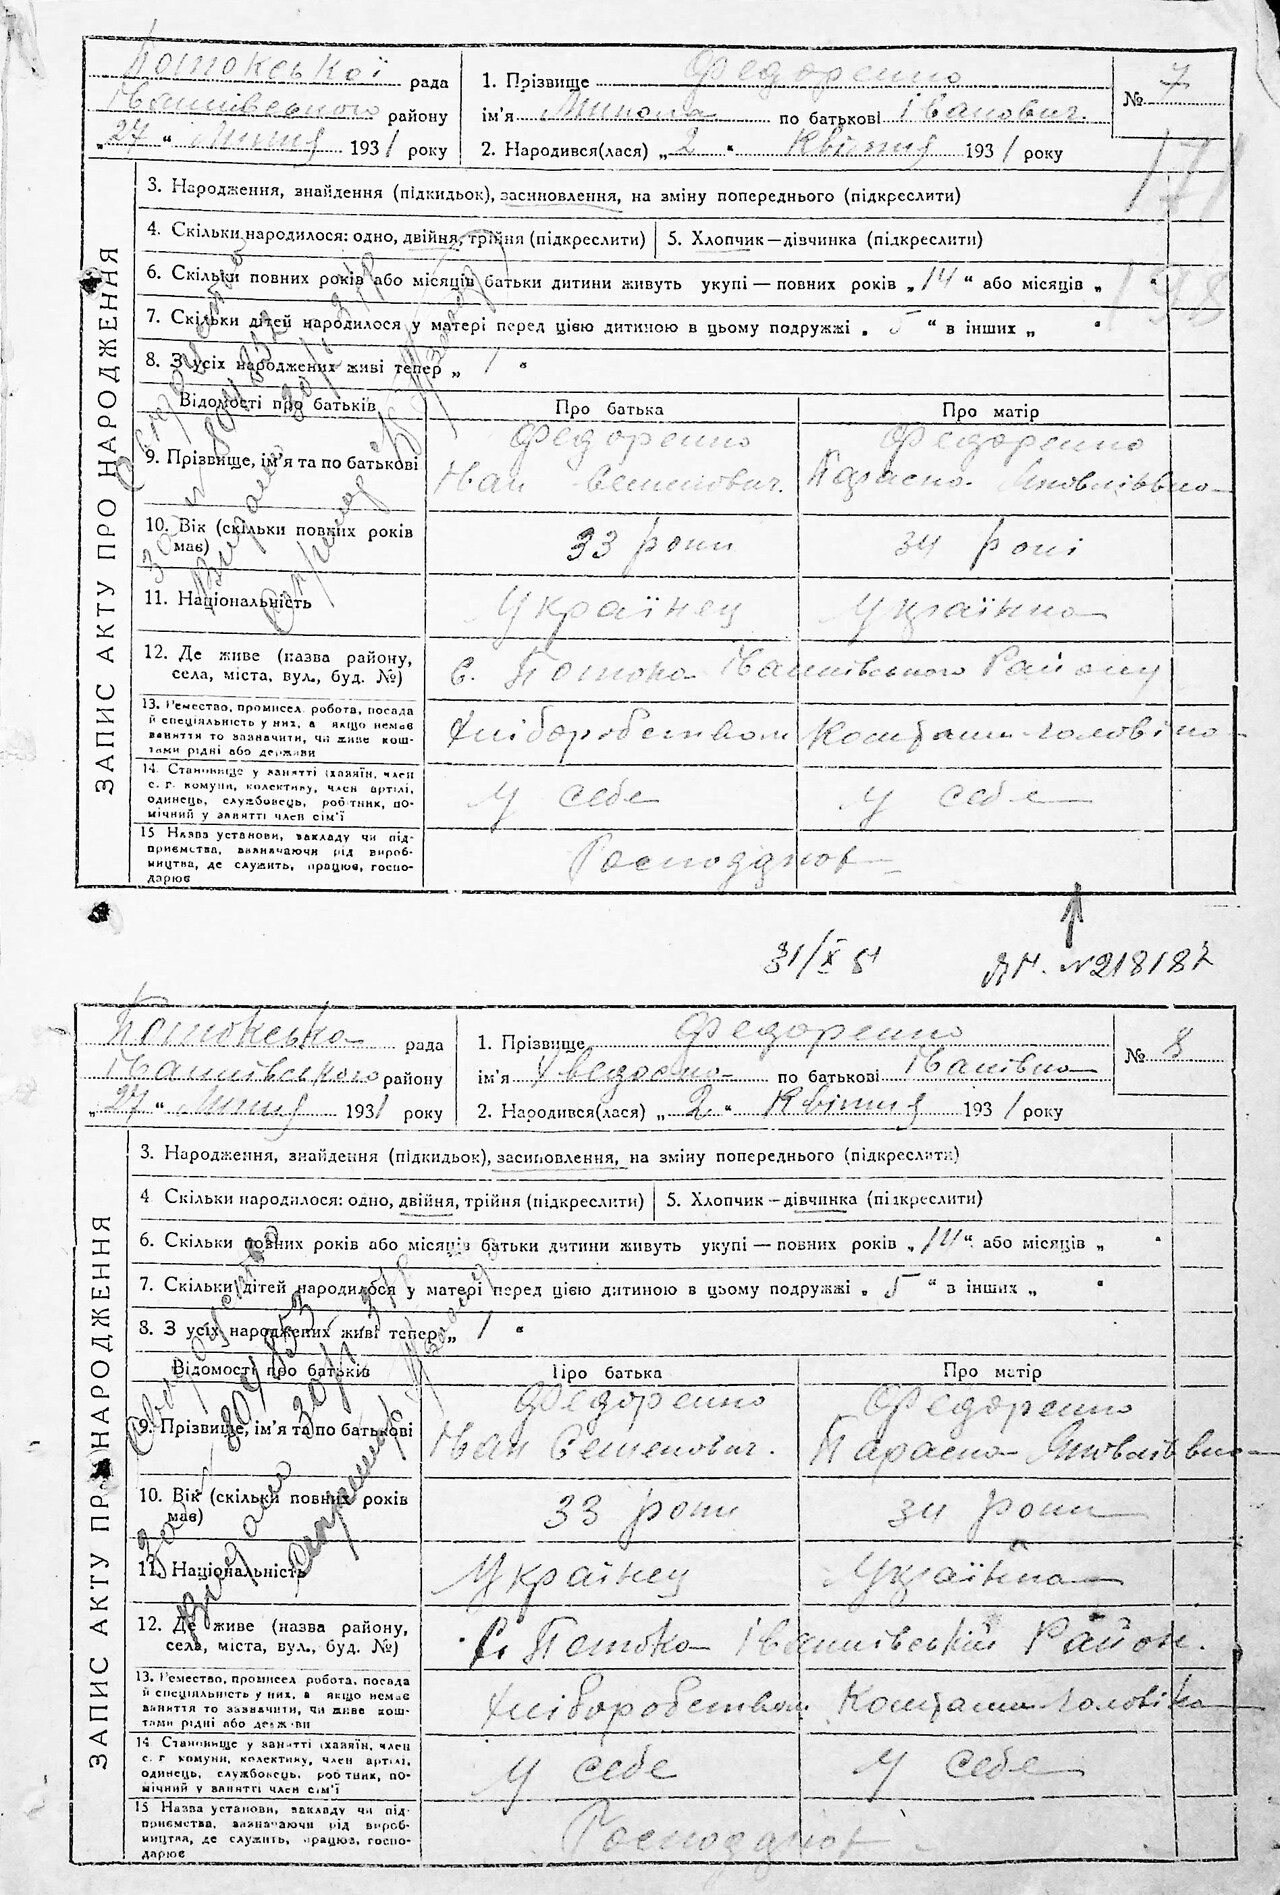 Потокської рада
Іванківського району
„27“ Липня 1931 року
1. Прізвище Федоренко
ім'я Микола по батькові Іванович.
2. Народився(лася) „2“ Квітня 1931 року
№ 7
171
198
ЗАПИС АКТУ ПРО НАРОДЖЕННЯ
3. Народження, знайдення (підкидьок), засиновлення, на зміну попереднього (підкреслити)
4. Скільки народилося: одно, двійня, трійня (підкреслити)
5. Хлопчик—дівчинка (підкреслити)
6. Скільки повних років або місяців батьки дитини живуть укупі — повних років „14“ або місяців „ “
7. Скільки дітей народилося у матері перед цією дитиною в цьому подружжі „5“ в інших „ “
8. З усіх народжених живі тепер „1“
Відомості про батьків
Про батька
Про матір
9. Прізвище, ім'я та по батькові
Федоренко
Іван Семенович.
Федоренко
Параска Яковлівна
10. Вік (скільки повних років має)
33 роки
34 рокі
11. Національність
Українец
Українка
12. Де живе (назва району,
села, міста, вул., буд. №)
С. Потоки Іванківського Району
13. Ремество, промисел, робота, посада
й спеціяльність у них, а якщо немає
заняття то зазначити, чи живе кош-
тами рідні або держави
Хліборобством
Коштами чоловіка
14. Становище у занятті (хазяїн, член
с. г. комуни, колективу, член артілі,
одинець, службовець, робітник, по-
мічний у занятті член сім'ї
У себе
У себе
15 Назва установи, закладу чи під-
приємства, зазначаючи рід вироб-
ництва, де служить, працює, госпо-
дарює
Свідоцтво
за № 804852
Видано 30/I 37 р
31/X 51
ЯН. №218187
Потокська рада
Іванківського району
„27“ Липня 1931 року
1. Прізвище Федоренко
ім'я Хведоска по батькові Іванівна
2. Народився(лася) „2“ Квітня 1931 року
№ 8
ЗАПИС АКТУ ПРО НАРОДЖЕННЯ
3. Народження, знайдення (підкидьок), засиновлення, на зміну попереднього (підкреслити)
4 Скільки народилося: одно, двійня, трійня (підкреслити)
5. Хлопчик—дівчинка (підкреслити)
6. Скільки повних років або місяців батьки дитини живуть укупі — повних років „14“ або місяців „ “
7. Скільки дітей народилося у матері перед цією дитиною в цьому подружжі „5“ в інших „ “
8. З усіх народжених живі тепер „1“
Відомості про батьків
Про батька
Про матір
9. Прізвище, ім'я та по батькові
Федоренко
Іван Семенович.
Федоренко
Параска Яковлівна
10. Вік (скільки повних років має)
33 роки
34 роки
11. Національність
Українец
Українка
12. Де живе (назва району,
села, міста, вул., буд. №)
С. Потоки Іванківський Район.
13. Ремество, промисел, робота, посада
й спеціяльність у них, а якщо немає
заняття то зазначити, чи живе кош-
тами рідні або держави
Хліборобством
Коштами чоловіка
14 Становище у занятті (хазяїн, член
с. г. комуни, колективу, член артілі,
одинець, службовець, робітник, по-
мічний у занятті член сім'ї
У себе
У себе
15 Назва установи, закладу чи під-
приємства, зазначаючи рід вироб-
ництва, де служить, працює, госпо-
дарює
Свідоцтво
за № 804853
Видано 30/I 37 р